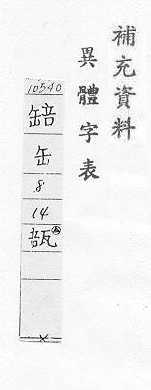 補充資料
異體字表
10540
缶
8
14
瓿